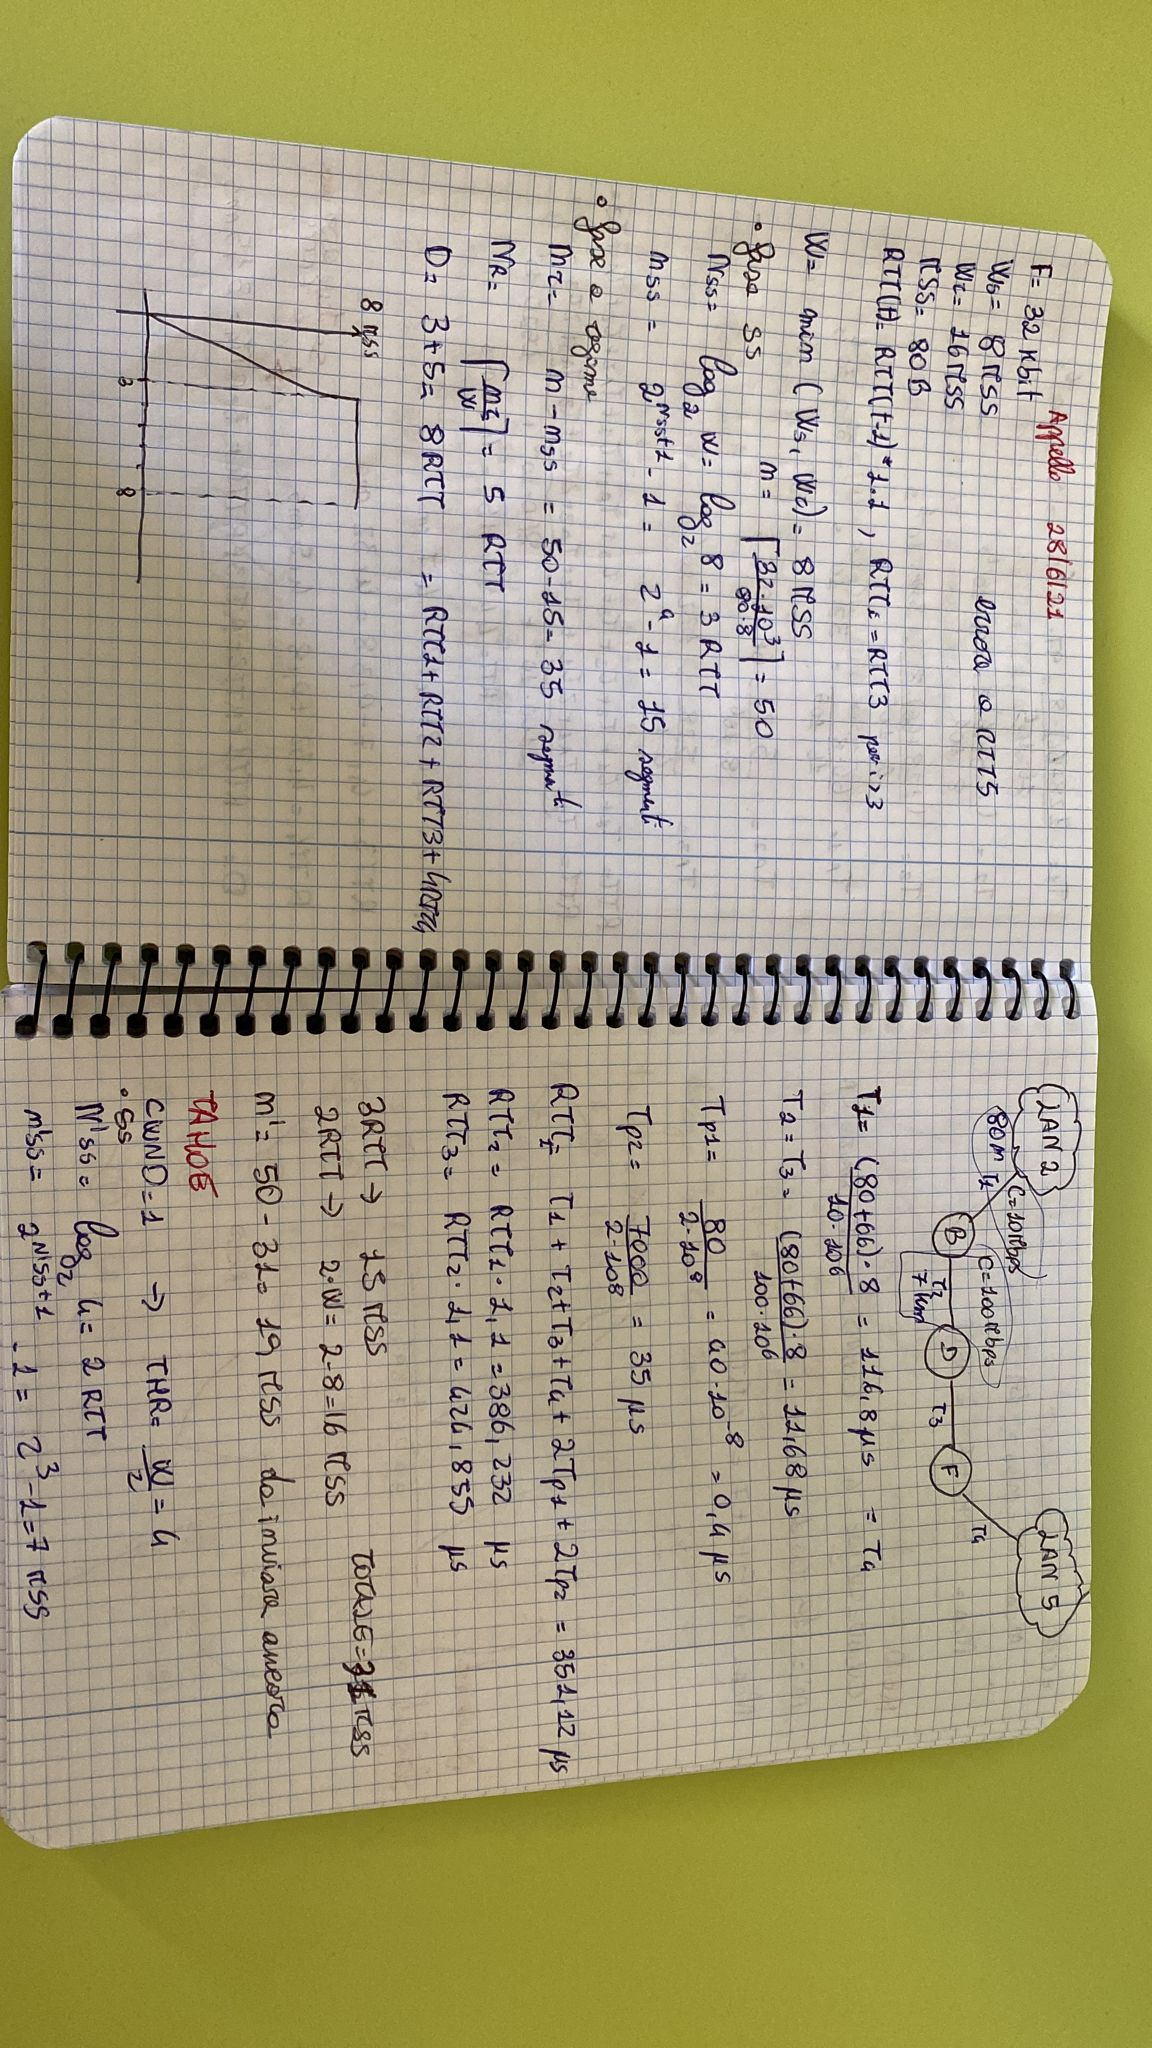 Appello 28/6/21
F= 32 Kbit
Ws= 8 MSS
errore a RTT5
Wc= 16 MSS
MSS= 80B
RTT(t)= RTT(t-1)*1.1, RTTi=RTT3 per i>3
W= min (Ws, Wc)= 8 MSS
m= ⌈32·10^3 / 80·8⌉ = 50
• fase SS
Nss= log2 W= log2 8 = 3 RTT
mss = 2^(Nss+1) - 1 = 2^4 - 1 = 15 segmenti
• fase a regime
mr= m-mss = 50-15= 35 segmenti
NR= ⌈mr / W⌉ = 5 RTT
D= 3+5= 8RTT = RTT1+RTT2+RTT3+4RTT4
8 MSS
3 8
LAN 2 LAN 5
C=10Mbps
80m T1 C=100Mbps T4
B D F
T2 T3
7 Km
T1= (80+66)·8 / 10·10^6 = 116,8 μs = T4
T2=T3= (80+66)·8 / 100·10^6 = 11,68 μs
Tp1= 80 / 2·10^8 = 40·10^-8 = 0,4 μs
Tp2= 7000 / 2·10^8 = 35 μs
RTT1= T1+T2+T3+T4+2Tp1+2Tp2 = 351,12 μs
RTT2= RTT1·1,1=386,232 μs
RTT3= RTT2·1,1=424,855 μs
3RTT → 15 MSS TOTALE=31 MSS
2RTT → 2·W= 2·8=16 MSS
m'= 50-31= 19 MSS da inviare ancora
TAHOE
CWND=1 → THR= W / 2 = 4
• SS
N'ss= log2 4= 2 RTT
m'ss= 2^(N'ss+1) -1= 2^3 -1=7 MSS